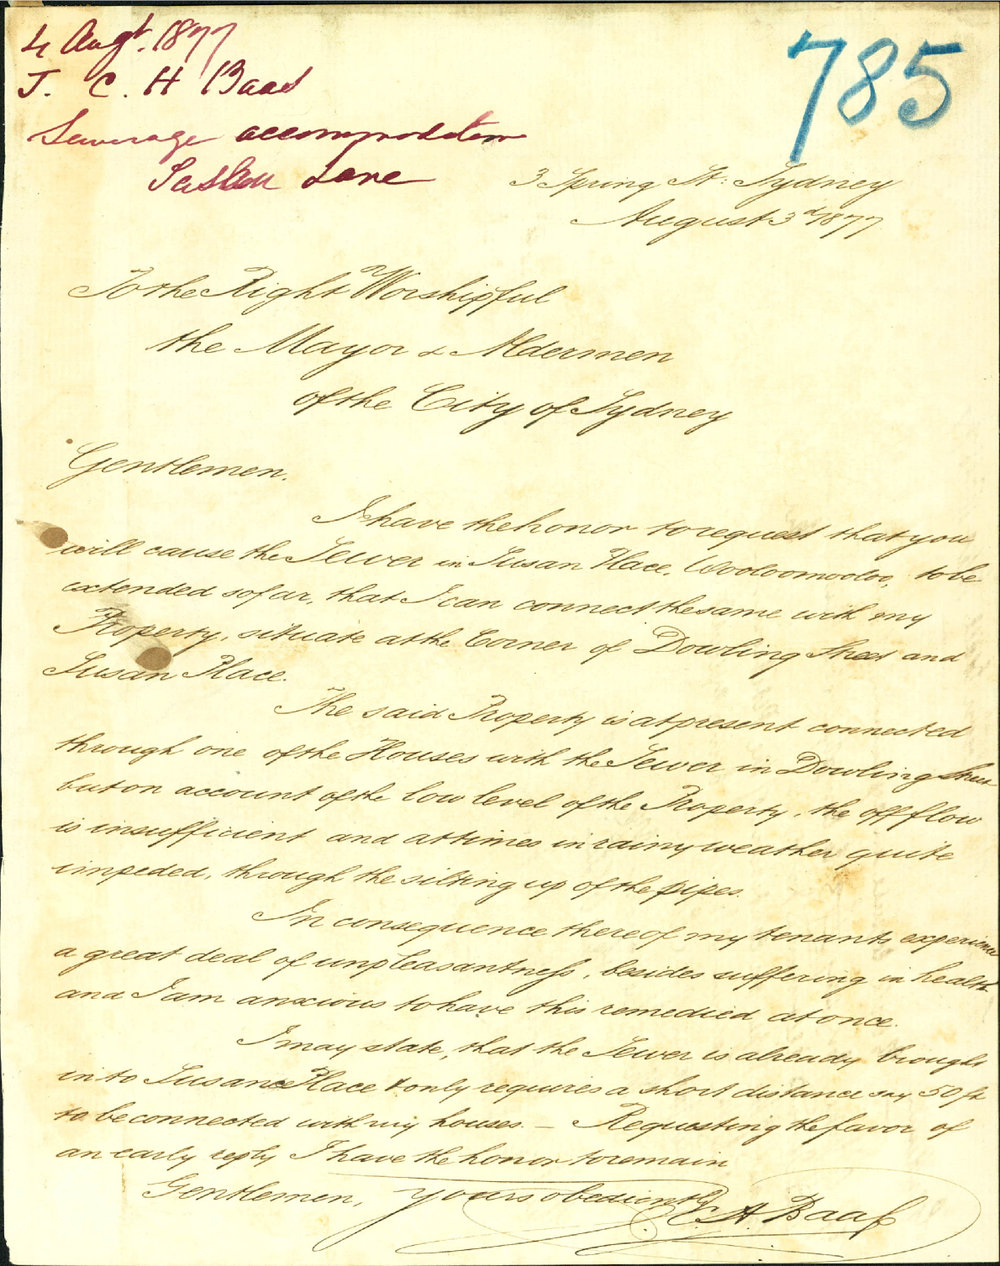 4 Augt. 1877
J. C. H Baas
Sewerage accommodation
Lane
785
3 Spring St: Sydney
August 3d 1877
To the Right Worshipful
the Mayor & Aldermen
of the City of Sydney
Gentlemen.
I have the honor to request that you
will cause the Sewer in Susan Place, Wooloomooloo, to be
extended so far, that I can connect the same with my
Property, situate at the Corner of Dowling Street and
Susan Place.
The said Property is at present connected
through one of the Houses with the Sewer in Dowling Street
but on account of the low level of the Property, the off flow
is insufficient and at times in rainy weather quite
impeded, through the silting up of the pipes.
In consequence thereof my tenants experience
a great deal of unpleasantness, besides suffering in health
and I am anxious to have this remedied at once.
I may state, that the Sewer is already brought
in to Susan Place & only requires a short distance say 50 ft
to be connected with my houses. — Requesting the favor of
an early reply I have the honor to remain
Gentlemen, yours obediently
C. H. Baas